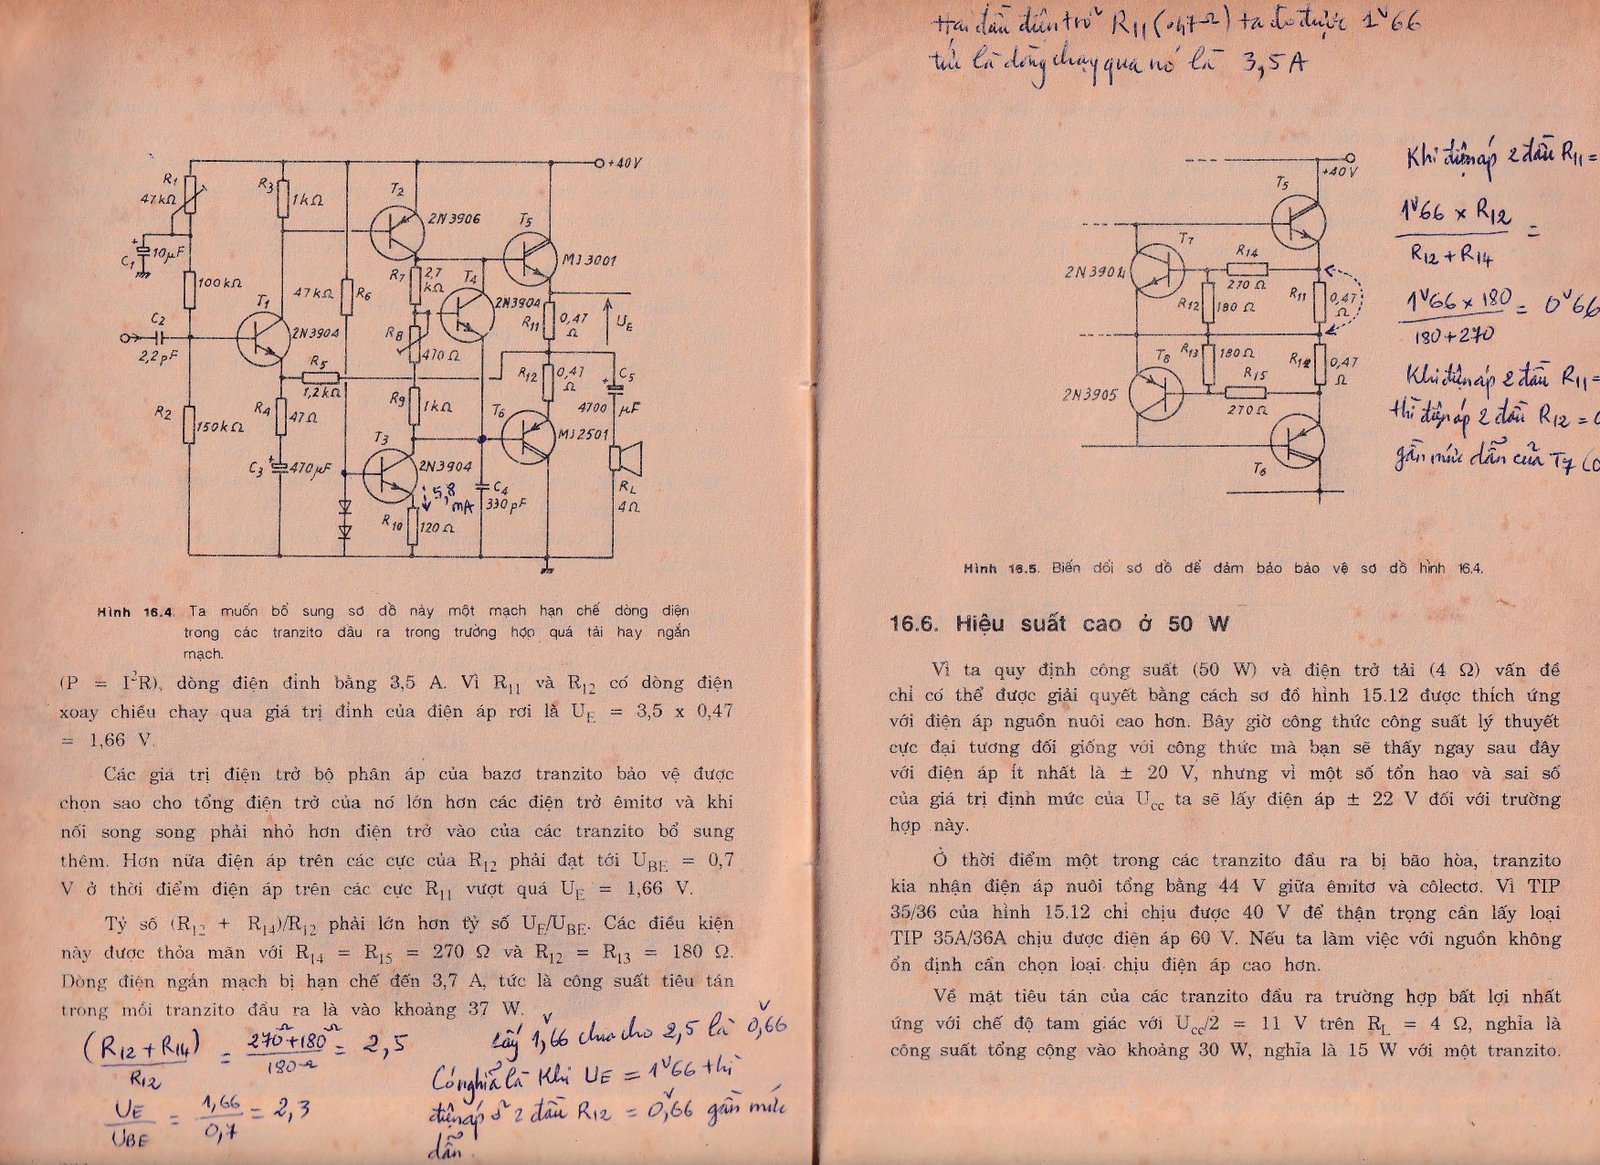 +40V
R1
47kΩ
R3
1kΩ
T2
2N3906
T5
MJ3001
C1
10µF
100kΩ
47kΩ
R6
R7
2,7
kΩ
T4
2N3904
R11
0,47
Ω
UE
T1
2N3904
C2
2,2pF
R8
470Ω
R5
1,2kΩ
R12
0,47
Ω
C5
4700
µF
R2
150kΩ
R4
47Ω
R9
1kΩ
T6
MJ2501
T3
2N3904
C3
470µF
5,8
mA
C4
330pF
RL
4Ω
R10
120Ω
Hình 16.4. Ta muốn bổ sung sơ đồ này một mạch hạn chế dòng điện
trong các tranzito đầu ra trong trường hợp quá tải hay ngắn
mạch.
(P = I²R), dòng điện đỉnh bằng 3,5 A. Vì R11 và R12 có dòng điện
xoay chiều chạy qua giá trị đỉnh của điện áp rơi là UE = 3,5 x 0,47
= 1,66 V.
Các giá trị điện trở bộ phân áp của bazơ tranzito bảo vệ được
chọn sao cho tổng điện trở của nó lớn hơn các điện trở êmitơ và khi
nối song song phải nhỏ hơn điện trở vào của các tranzito bổ sung
thêm. Hơn nữa điện áp trên các cực của R12 phải đạt tới UBE = 0,7
V ở thời điểm điện áp trên các cực R11 vượt quá UE = 1,66 V.
Tỷ số (R12 + R14)/R12 phải lớn hơn tỷ số UE/UBE. Các điều kiện
này được thỏa mãn với R14 = R15 = 270 Ω và R12 = R13 = 180 Ω.
Dòng điện ngắn mạch bị hạn chế đến 3,7 A, tức là công suất tiêu tán
trong mỗi tranzito đầu ra là vào khoảng 37 W.
(R12 + R14) / R12 = 270Ω + 180Ω / 180Ω = 2,5
UE / UBE = 1,66 / 0,7 = 2,3
Lấy 1,66 chia cho 2,5 là 0,66
Có nghĩa là Khi UE = 1V66 thì
điện áp ở 2 đầu R12 = 0,66 gần mức
dẫn.
Hai đầu điện trở R11 (0,47Ω) ta đo được 1V66
tức là dòng chạy qua nó là 3,5A
+40V
T5
T7
2N3904
R14
270Ω
R12
180Ω
R11
0,47
Ω
T8
2N3905
R13
180Ω
R15
270Ω
0,47
Ω
T6
Khi điện áp 2 đầu R11 =
1V66 x R12 / R12 + R14 =
1V66 x 180 / 180 + 270 = 0V66
Khi điện áp 2 đầu R11 =
thì điện áp 2 đầu R12 =
gần mức dẫn của T7
Hình 16.5. Biến đổi sơ đồ để đảm bảo bảo vệ sơ đồ hình 16.4.
16.6. Hiệu suất cao ở 50 W
Vì ta quy định công suất (50 W) và điện trở tải (4 Ω) vấn đề
chỉ có thể được giải quyết bằng cách sơ đồ hình 15.12 được thích ứng
với điện áp nguồn nuôi cao hơn. Bây giờ công thức công suất lý thuyết
cực đại tương đối giống với công thức mà bạn sẽ thấy ngay sau đây
với điện áp ít nhất là ± 20 V, nhưng vì một số tổn hao và sai số
của giá trị định mức của Ucc ta sẽ lấy điện áp ± 22 V đối với trường
hợp này.
Ở thời điểm một trong các tranzito đầu ra bị bão hòa, tranzito
kia nhận điện áp nuôi tổng bằng 44 V giữa êmitơ và côlectơ. Vì TIP
35/36 của hình 15.12 chỉ chịu được 40 V để thận trọng cần lấy loại
TIP 35A/36A chịu được điện áp 60 V. Nếu ta làm việc với nguồn không
ổn định cần chọn loại chịu điện áp cao hơn.
Về mặt tiêu tán của các tranzito đầu ra trường hợp bất lợi nhất
ứng với chế độ tam giác với Ucc/2 = 11 V trên RL = 4 Ω, nghĩa là
công suất tổng cộng vào khoảng 30 W, nghĩa là 15 W với một tranzito.